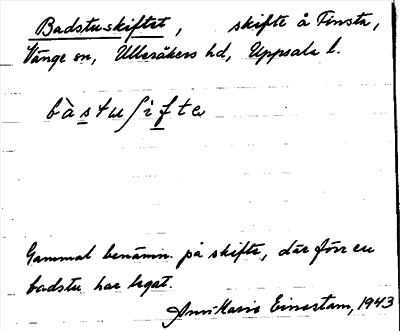 Badstuskiftet, skifte å Finsta,
Vänge sn, Ulleråkers hd, Uppsala l.
bàstuʃiftə
Gammal benämn. på skifte, där förr en
badstu har legat.
AnnMarie Einerstam, 1943